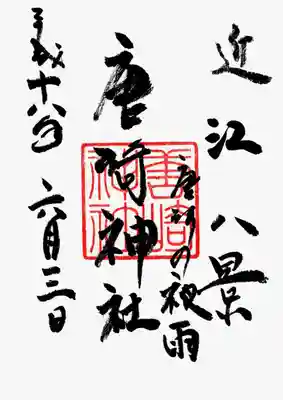 近江八景
唐崎の夜雨
唐崎神社
平成十八年 六月三日
唐崎神社